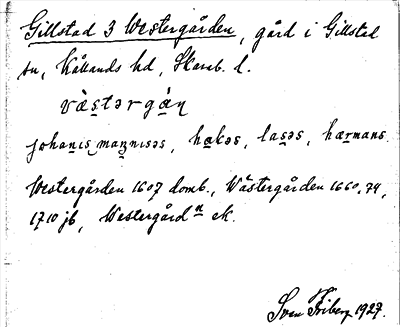 Gillstad 3 Westergården, gård i Gillstad
sn, Kållands hd, Skarab. l.
væ̀stərgáṇ
johanis, maṇnisəs, hakəs, lasəs, hærmans.
Westergården 1607 domb., Wästergården 1660, 79,
1710 jb, Westergård n ek.
Sven Friberg 1927.